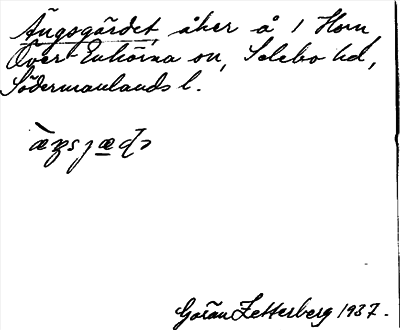 Ängsgärdet, åker å 1 Horn,
Över Enhörna sn, Selebo hd,
Södermanlands l.
Göran Zetterberg 1937.